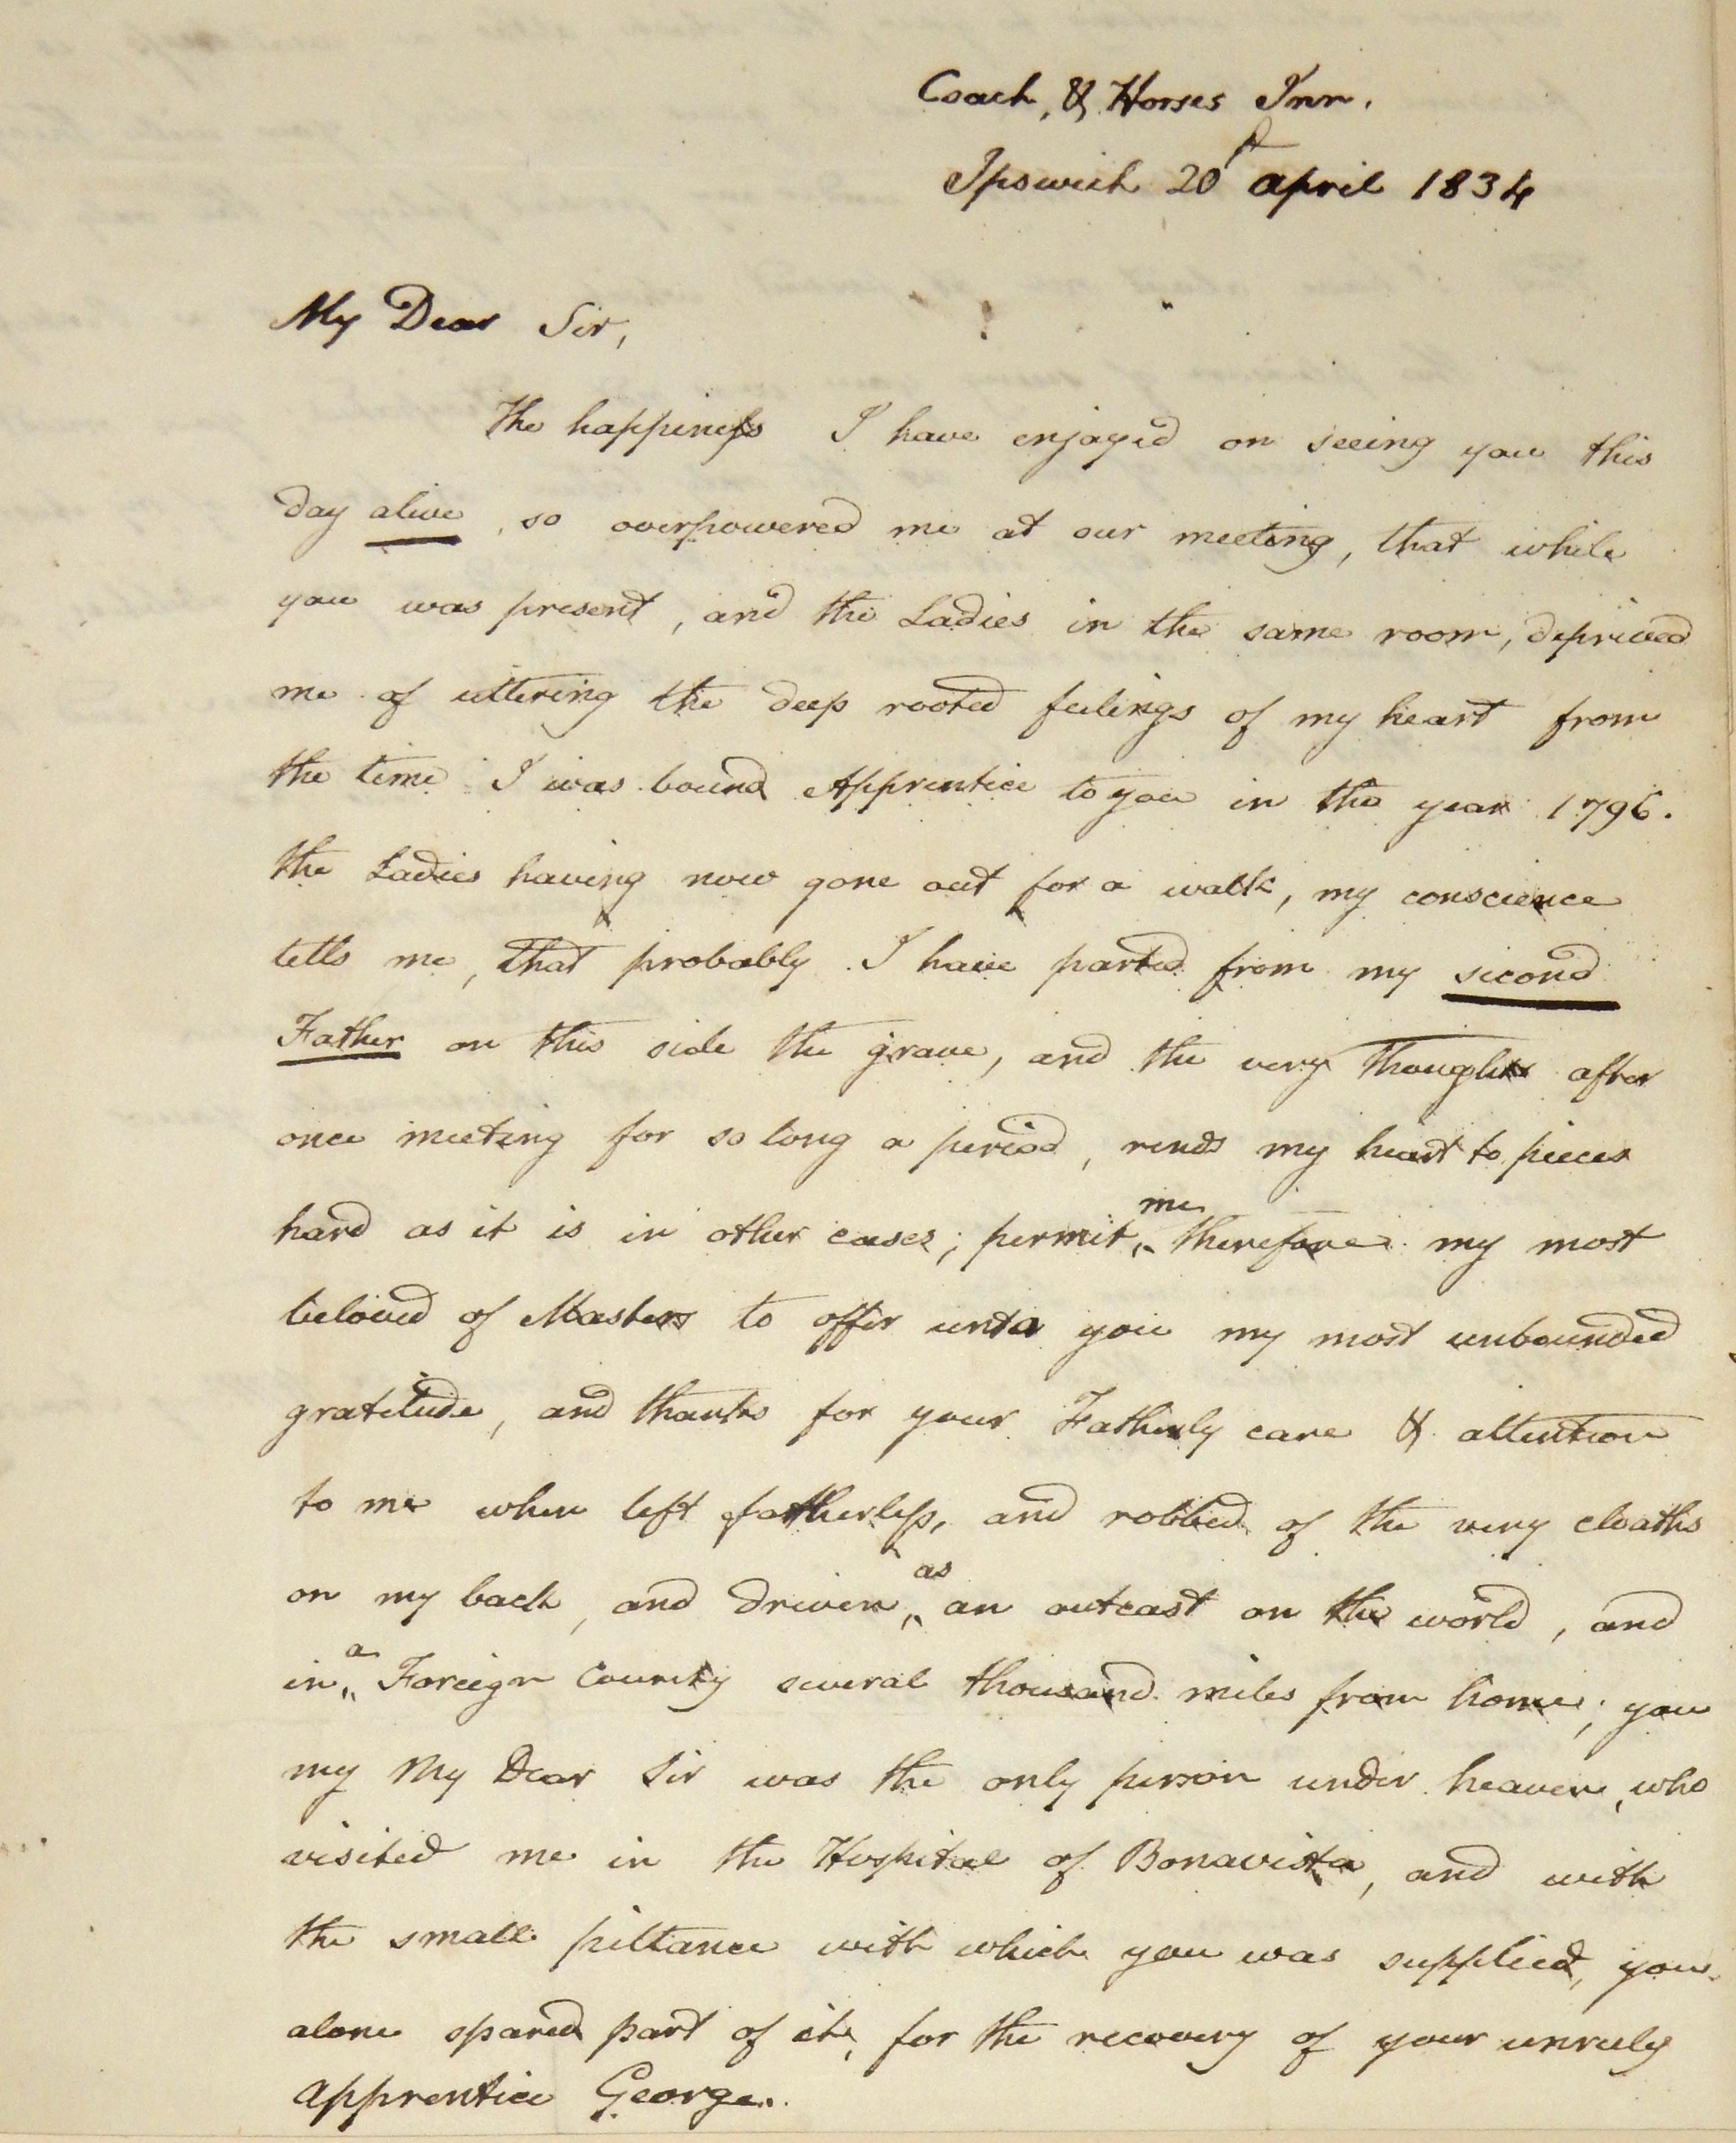 Coach, & Horses Inn.
Ipswich 20 april 1834
My Dear Sir,
The happiness I have enjoyed on seeing you this
day alive, so overpowered me at our meeting, that while
you was present, and the Ladies in the same room, deprived
me of uttering the deep rooted feelings of my heart from
the time I was bound Apprentice to you in the year 1796.
the Ladies having now gone out for a walk, my conscience
tells me, that probably I have parted from my second
Father on this side the grave, and the very thought after
once meeting for so long a period, rends my heart to pieces
hard as it is in other cases; permit, me therefore my most
beloved of Masters to offer unto you my most unbounded
gratitude, and thanks for your Fatherly care & attention
to me when left fatherless, and robbed of the very cloaths
on my back, and driven, as an outcast on the world, and
in a Foreign Country several thousand miles from home; you
my My Dear Sir was the only person under heaven, who
visited me in the Hospital of Bonavista, and with
the small pittance with which you was supplied, you
alone spared part of it, for the recovery of your unruly
apprentice George.